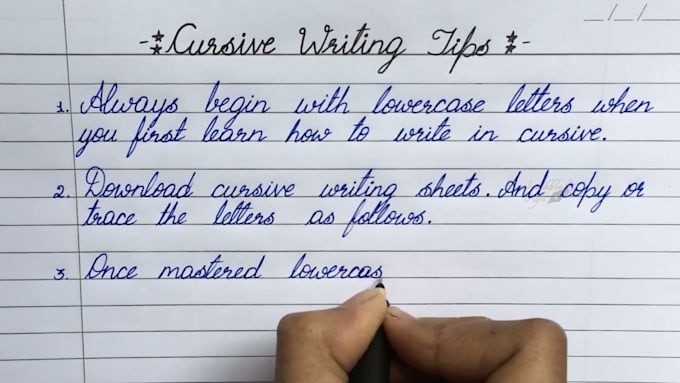 -⁑Cursive Writing Tips⁑-
1. Always begin with lowercase letters when
you first learn how to write in cursive.
2. Download cursive writing sheets. And copy or
trace the letters as follows.
3. Once mastered lowercas